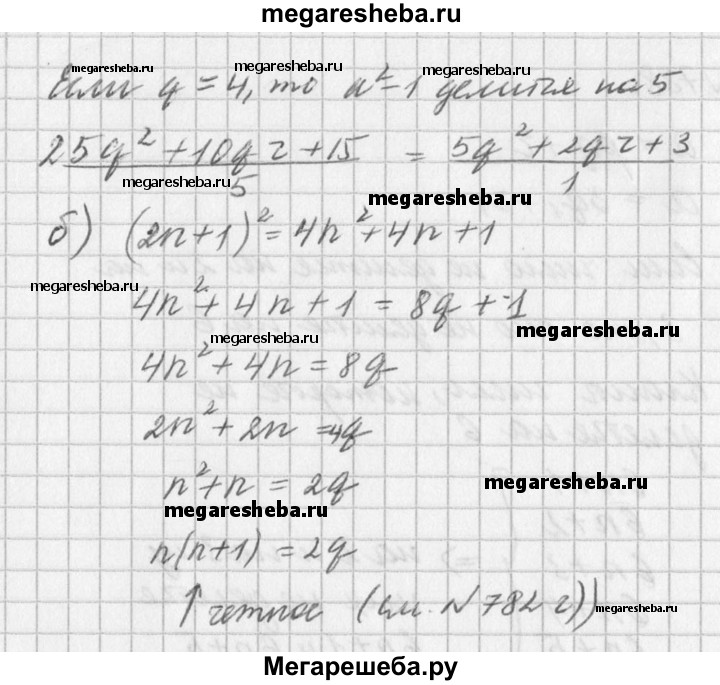 megaresheba.ru
megaresheba.ru megaresheba.ru megaresheba.ru
Если q = 4, то a² - 1 делится на 5
(25q² + 10qr + 15)/5 = (5q² + 2qr + 3)/1
megaresheba.ru megaresheba.ru
б) (2n+1)² = 4n² + 4n + 1
megaresheba.ru
4n² + 4n + 1 = 8q + 1
megaresheba.ru megaresheba.ru
4n² + 4n = 8q
2n² + 2n = 4q
n² + n = 2q
megaresheba.ru
megaresheba.ru
n(n+1) = 2q
↑ четное (см. №782 г))
megaresheba.ru
Мегарешеба.ру